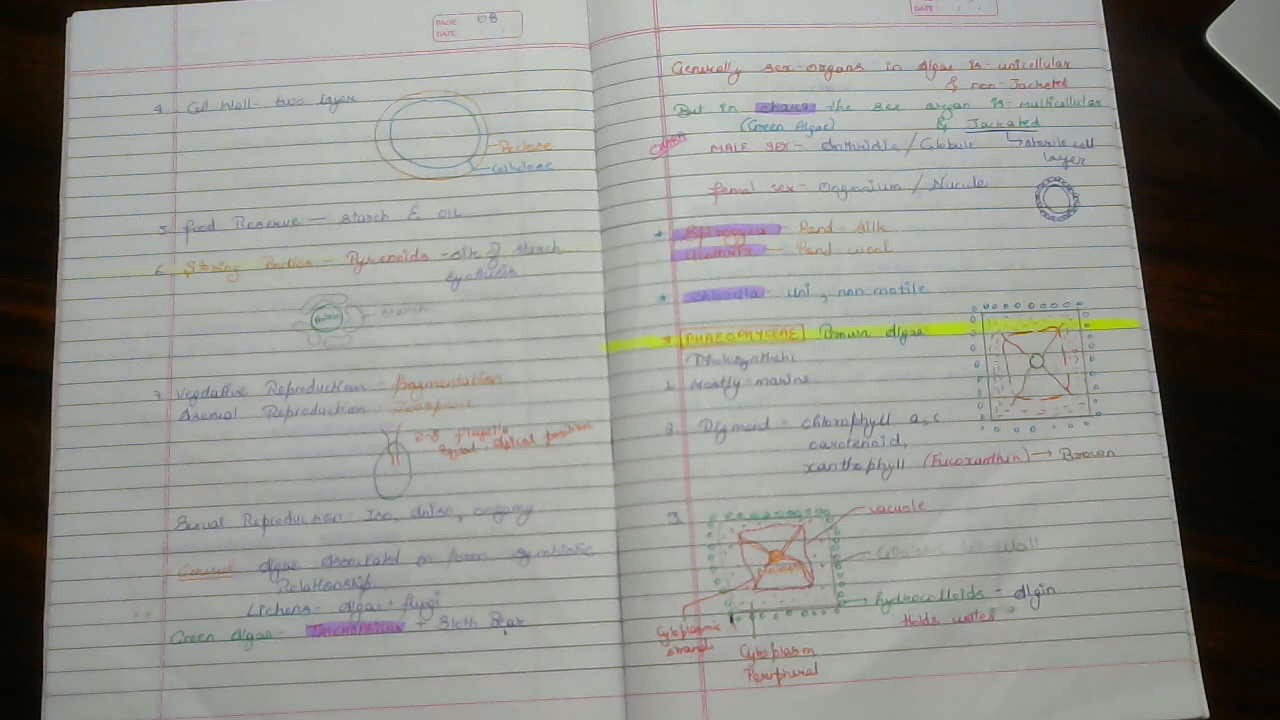 PAGE 08
DATE
4. Cell Wall - two layer
Pectose
Cellulose
5. food Reserve — starch & oil
6. Storing Bodies - Pyrenoids - site of starch
synthesis
Protein
starch
7. Vegetative Reproduction - fragmentation
Asexual Reproduction - Zoospore
2-8 flagella
equal - apical position
Sexual Reproduction - Iso, Aniso, oogamy
General algae associated or form symbiotic
Relationship
Lichens - algae + fungi
Green algae - + Sloth Bear
DATE
Generally sex-organs in algae is - unicellular
& non-Jacketed
But in chara the sex organ is - multicellular
(Green Algae) & Jacketed
MALE SEX - Anthridia / Globule sterile cell
layer
femal sex - Oogonium / Nucule
* Spirogyra - Pond - silk
Ulothrix - Pond wool
* Chlorella uni, non motile
* PHAEOPHYCEAE Brown algae
Photosynthetic
1. Mostly marine
2. Pigment - chlorophyll a, c
carotenoid,
xanthophyll (Fucoxanthin) → Brown
3.
vacuole
wall
Hydrocolloids - Algin
Holds water
Cytoplasmic
strands
Cytoplasm
Peripheral